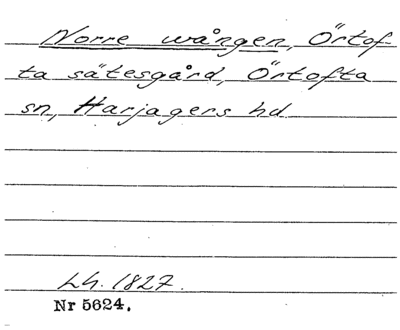 Norre wången, Örtof-
ta sätesgård, Örtofta
sn, Harjagers hd
Lh. 1827.
Nr 5624.